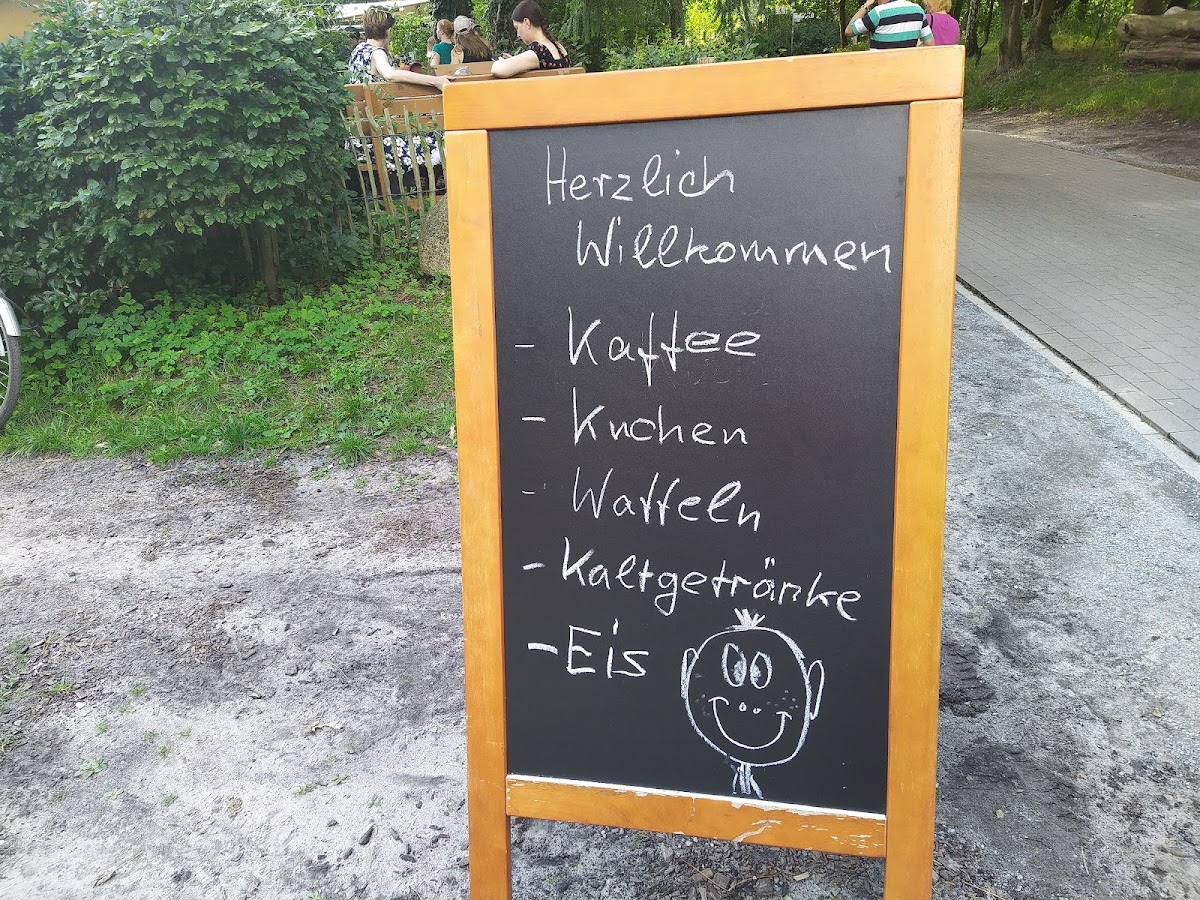 Herzlich
Willkommen
- Kaffee
- Kuchen
- Waffeln
- Kaltgetränke
- Eis